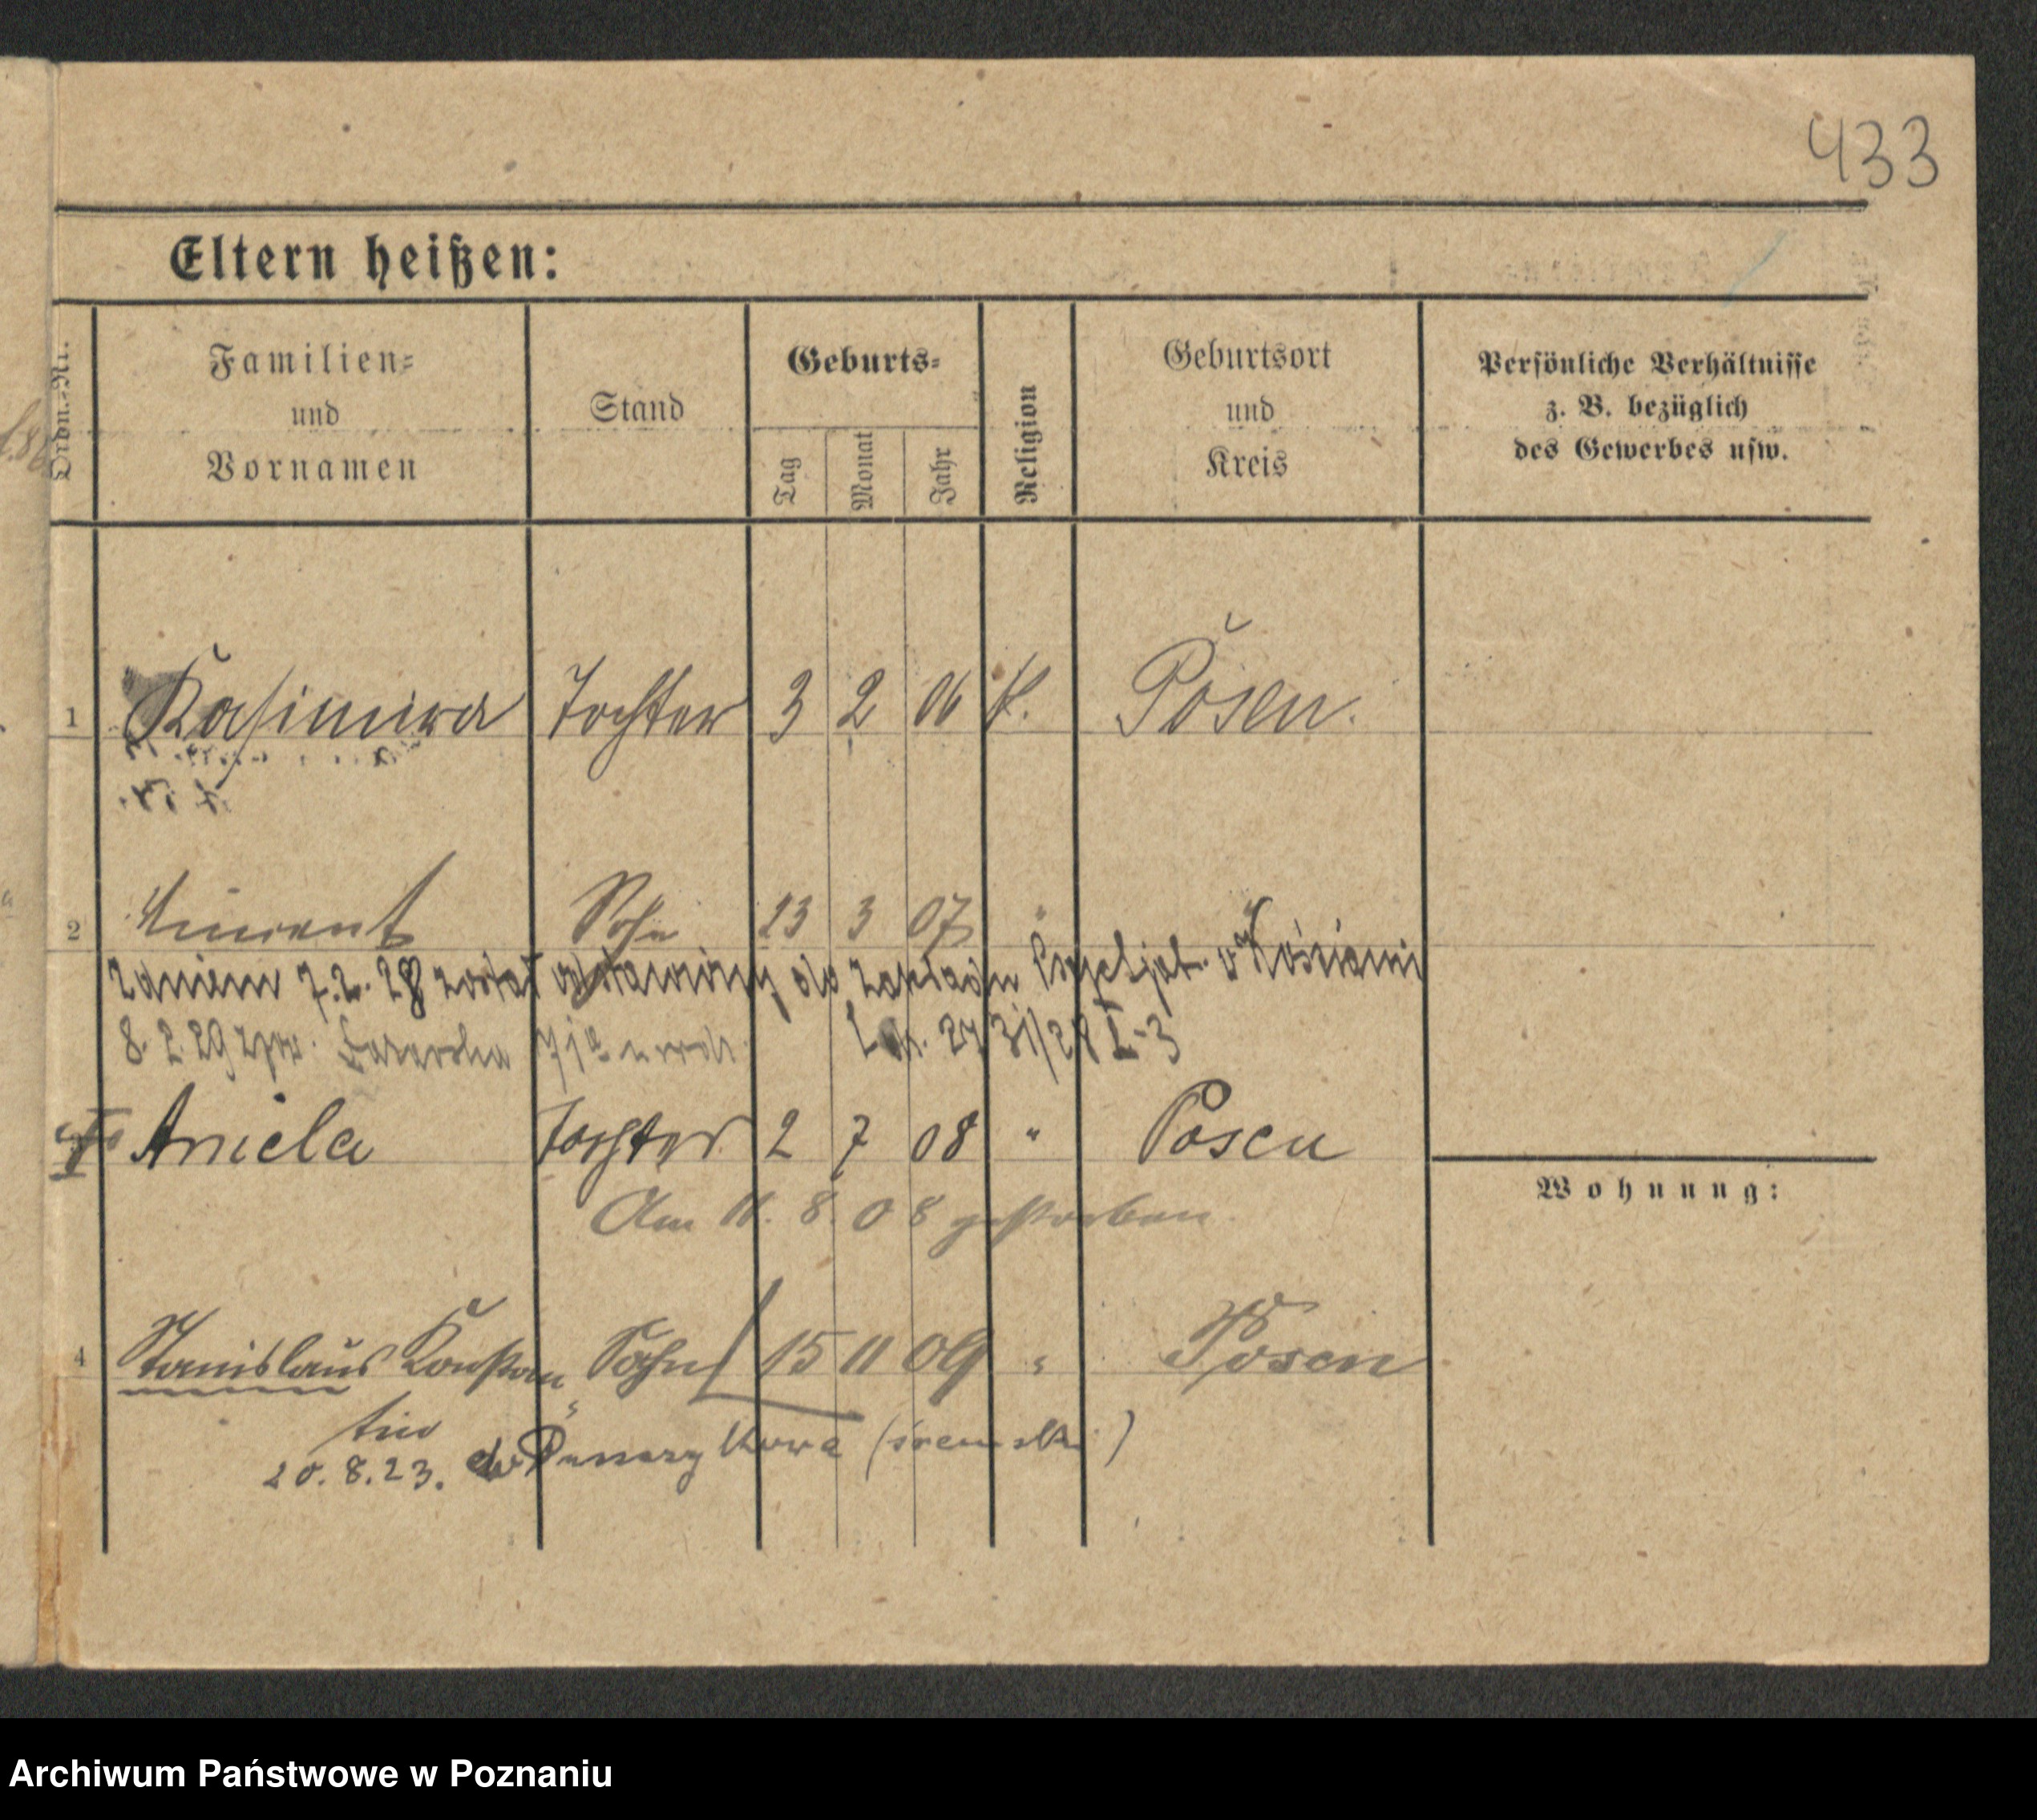 433
Eltern heißen:
Ordn.-Nr.
Familien- und Vornamen
Stand
Geburts-
Tag Monat Jahr
Religion
Geburtsort und Kreis
Persönliche Verhältnisse z. B. bezüglich des Gewerbes usw.
1 Kasimira Tochter 3 2 06 k. Posen.
2 Vincent Sohn 23 3 07 "
dniem 7.2.28 został odstawiony do zakładu w Kościanie
8.2.29
L. dz. I-3
Aniela Tochter 2 7 08 " Posen
Am 11. 8. 08 gestorben.
Wohnung:
4 Stanislaus Konstan- Sohn 15 11 09 " Posen
tin
20.8.23. do (śremski)
Archiwum Państwowe w Poznaniu